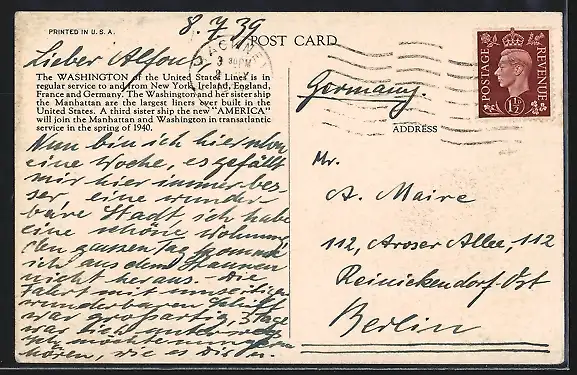 PRINTED IN U. S. A.
8. 7. 39
POST CARD
Lieber Alfons
The WASHINGTON of the United States Lines is in
regular service to and from New York, Ireland, England,
France and Germany. The Washington and her sister ship
the Manhattan are the largest liners ever built in the
United States. A third sister ship the new "AMERICA"
will join the Manhattan and Washington in transatlantic
service in the spring of 1940.
Nun bin ich hier schon
eine Woche, es gefällt
mir hier immer bes-
ser, eine wunder-
bare Stadt, ich habe
eine schöne Wohnung
den ganzen Tag komme
ich aus dem Staunen
nicht heraus. Die
Fahrt mit
wunderbaren Schiff
war großartig, 3 Tage
war ich unterwegs
möchte
hören, wie es Dir
POSTAGE
REVENUE
1½D
Germany.
ADDRESS
Mr.
A. Maire
112, Aroser Allee, 112
Reinickendorf-Ost
Berlin